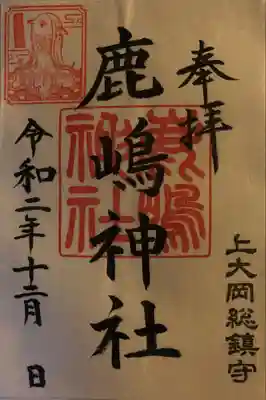 奉拝
上大岡総鎮守
鹿嶋神社
令和二年十二月 日